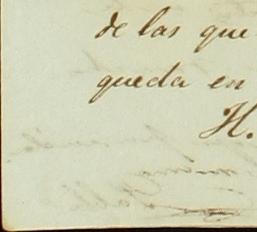 de las que
queda en
H.